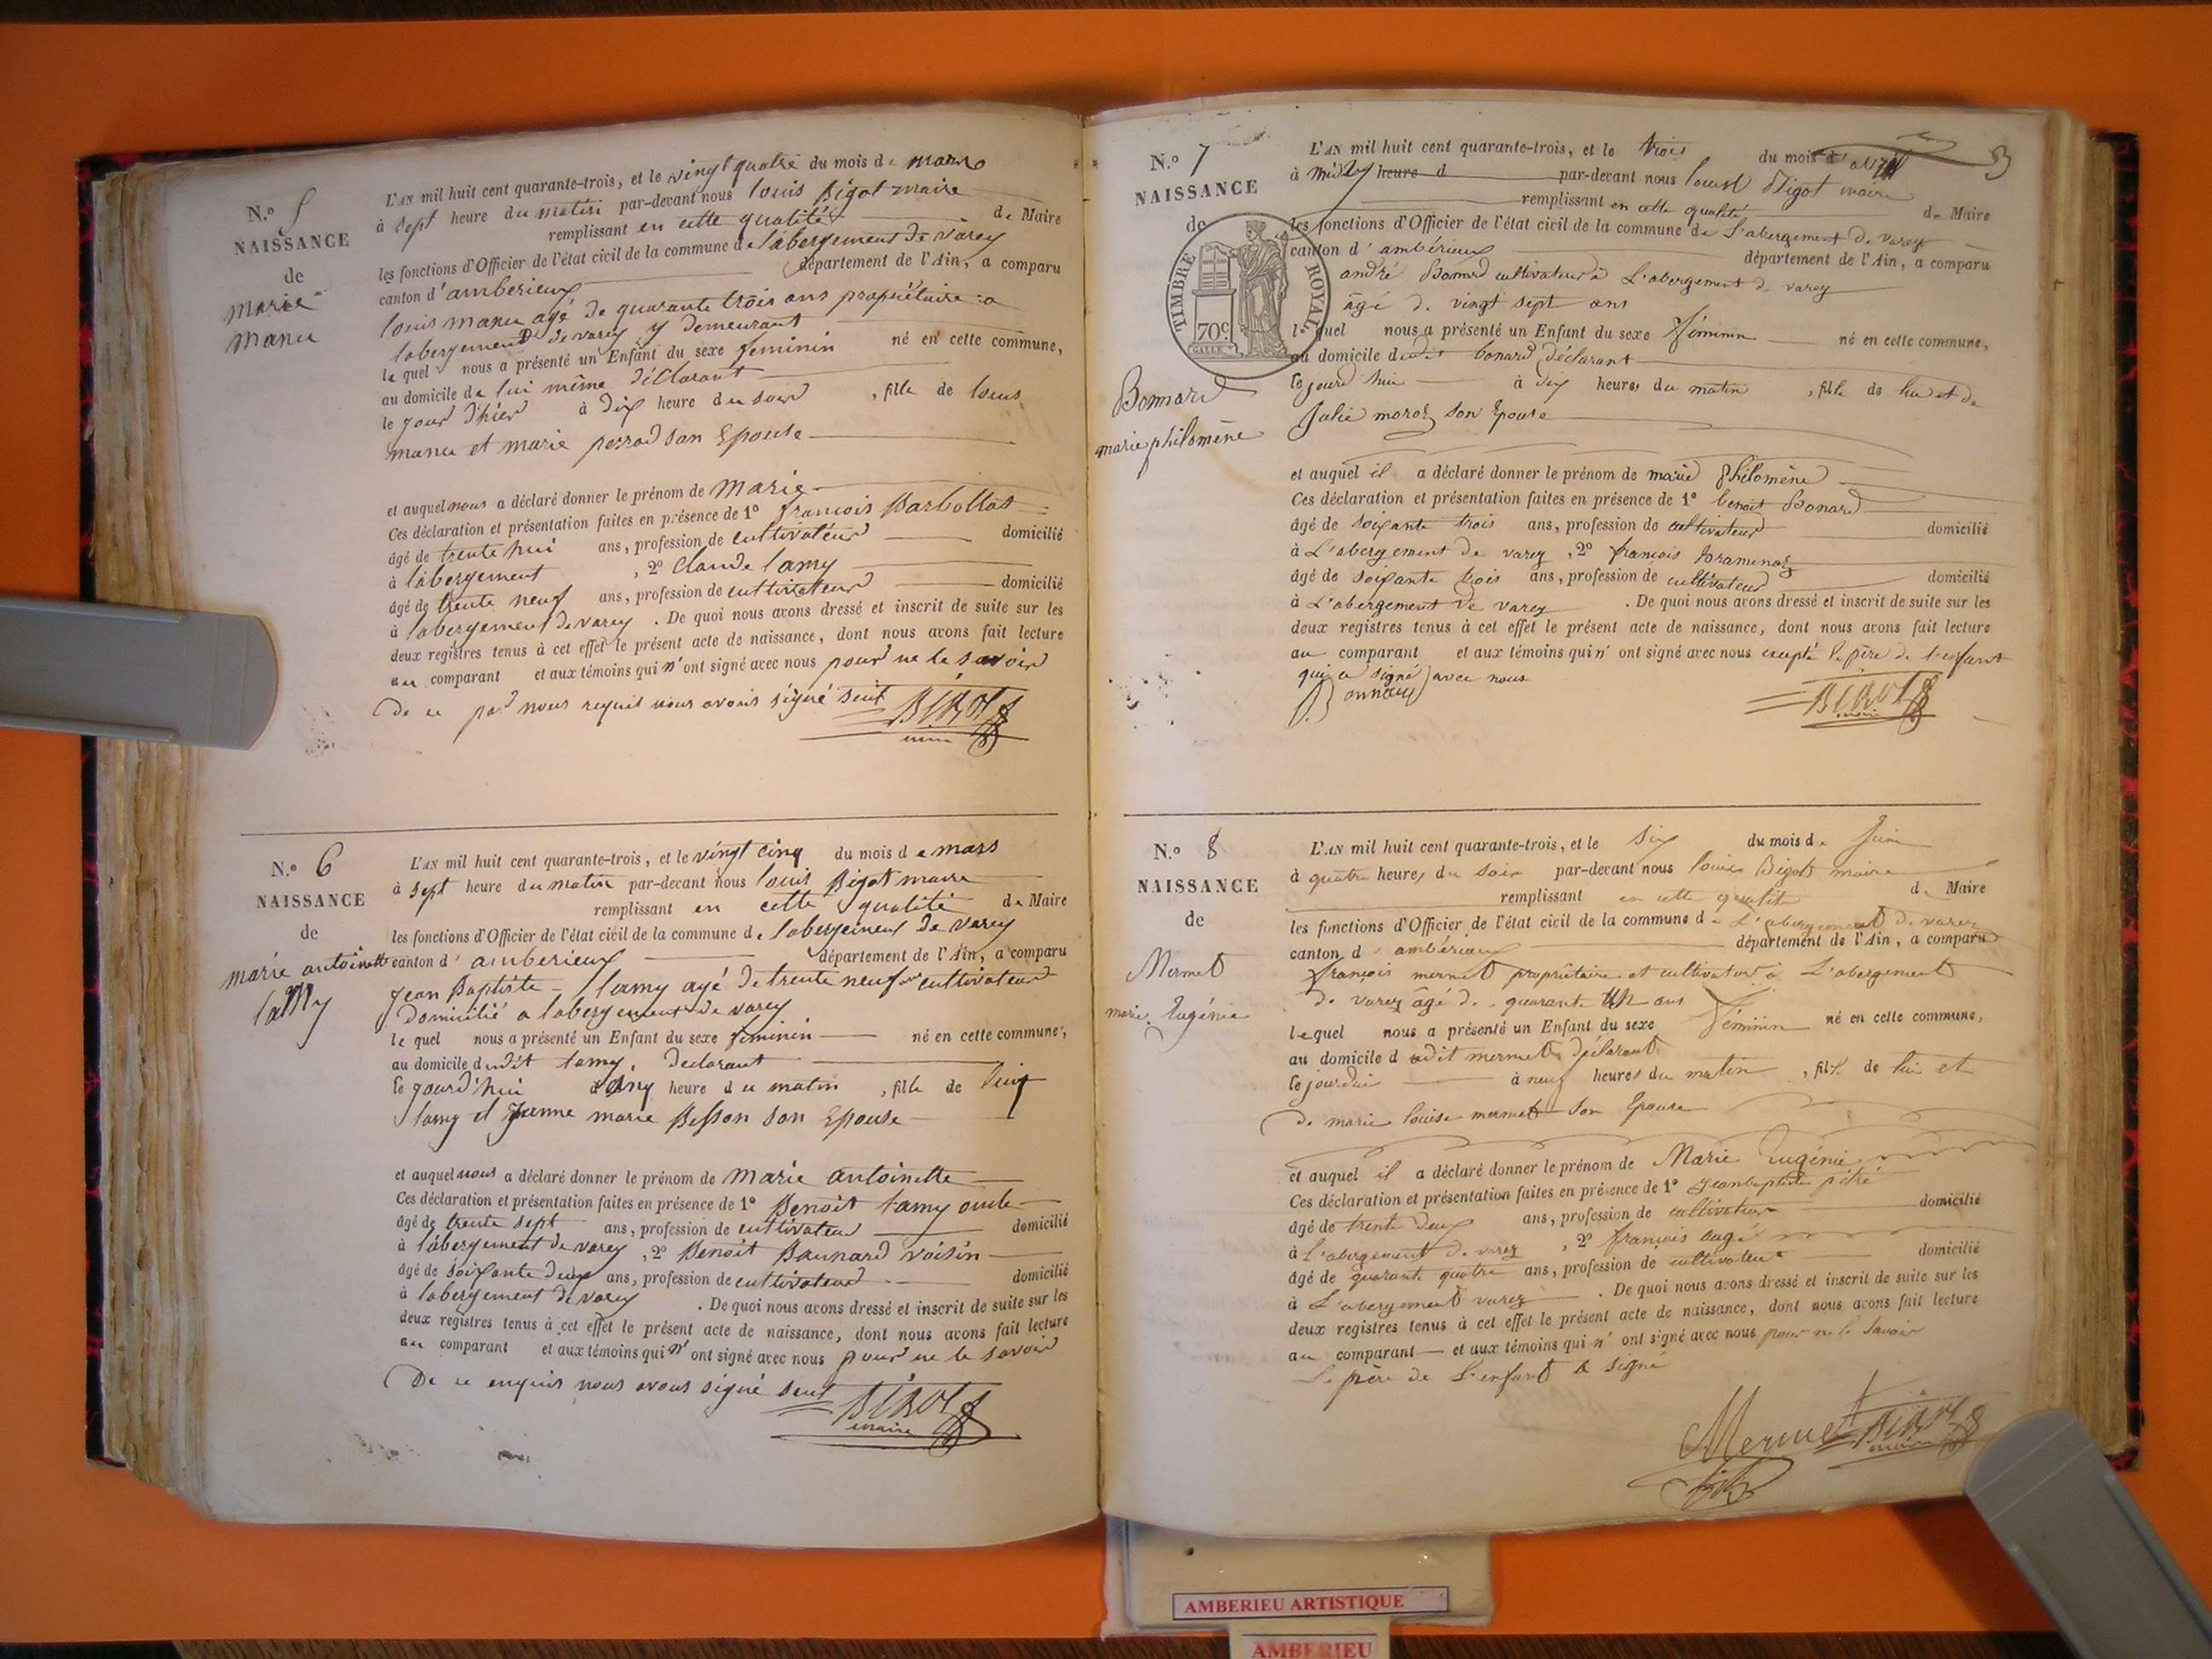 N.° 5
NAISSANCE
de
marie
manu
L'AN mil huit cent quarante-trois, et le vingt quatre du mois de mars
à sept heure du matin par-devant nous louis Bigot maire
remplissant en cette qualité de Maire
les fonctions d'Officier de l'état civil de la commune de labergement de varey
canton d'amberieux département de l'Ain, a comparu
louis manu agé de quarante trois ans propriétaire a
labergement de varey y demeurant
le quel nous a présenté un Enfant du sexe feminin né en cette commune,
au domicile de lui même déclarant
le jour d'hier à dix heure du soir , fille de louis
manu et marie perrod son Epouse
et auquel nous a déclaré donner le prénom de Marie
Ces déclaration et présentation faites en présence de 1° francois Barbollat
âgé de trente hui ans, profession de cultivateur domicilié
à labergement , 2° Claude lamy
âgé de trente neuf ans, profession de cultivateur domicilié
à labergement de varey . De quoi nous avons dressé et inscrit de suite sur les
deux registres tenus à cet effet le présent acte de naissance, dont nous avons fait lecture
au comparant et aux témoins qui n'ont signé avec nous pour ne le savoir
De ce par nous requis nous avons signé seul BIGOT
maire
N.° 6
NAISSANCE
de
marie antoinette
lamy
L'AN mil huit cent quarante-trois, et le vingt cinq du mois de mars
à sept heure du matin par-devant nous louis Bigot maire
remplissant en cette qualité de Maire
les fonctions d'Officier de l'état civil de la commune de labergement de varey
canton d'amberieux département de l'Ain, a comparu
Jean Baptiste lamy agé de trente neuf ans cultivateur
domicilié a labergement de varey
le quel nous a présenté un Enfant du sexe feminin né en cette commune,
au domicile dudit lamy, declarant
le jourd'hui à cinq heure du matin , fille de luy
lamy et Jeanne marie Besson son Epouse
et auquel nous a déclaré donner le prénom de Marie antoinette
Ces déclaration et présentation faites en présence de 1° Benoit lamy oncle
âgé de trente sept ans, profession de cultivateur domicilié
à labergement de varey , 2° Benoit Bannard voisin
âgé de soixante deux ans, profession de cultivateur domicilié
à labergement de varey . De quoi nous avons dressé et inscrit de suite sur les
deux registres tenus à cet effet le présent acte de naissance, dont nous avons fait lecture
au comparant et aux témoins qui n'ont signé avec nous pour ne le savoir
De ce enquis nous avons signé seul BIGOT
maire
3
N.° 7
NAISSANCE
de
TIMBRE ROYAL
70c
Bonnard
marie philomène
L'AN mil huit cent quarante-trois, et le trois du mois d'avril
à midy heure d par-devant nous louis Bigot maire
remplissant en cette qualité de Maire
les fonctions d'Officier de l'état civil de la commune de L'abergement de varey
canton d'ambérieux département de l'Ain, a comparu
andré Bonard cultivateur à L'abergement de varey
âgé de vingt sept ans
lequel nous a présenté un Enfant du sexe féminin né en cette commune,
au domicile dudit bonard déclarant
le jourd hui à dix heures du matin , fille de lui et de
Julie moroz son Epouse
et auquel il a déclaré donner le prénom de marie Philomène
Ces déclaration et présentation faites en présence de 1° benoit Bonard
âgé de soixante trois ans, profession de cultivateur domicilié
à L'abergement de varey , 2° francois
âgé de soixante trois ans, profession de cultivateur domicilié
à L'abergement de varey . De quoi nous avons dressé et inscrit de suite sur les
deux registres tenus à cet effet le présent acte de naissance, dont nous avons fait lecture
au comparant et aux témoins qui n'ont signé avec nous excepté le père de l'enfant
qui a signé avec nous
BIGOT
maire
N.° 8
NAISSANCE
de
Mermet
marie Eugénie
L'AN mil huit cent quarante-trois, et le six du mois de Juin
à quatre heures du soir par-devant nous louis Bigot maire
remplissant en cette qualité de Maire
les fonctions d'Officier de l'état civil de la commune de L'abergement de varey
canton d'ambérieux département de l'Ain, a comparu
françois mermet propriétaire et cultivateur à L'abergement
de varey âgé de quarante un ans
lequel nous a présenté un Enfant du sexe féminin né en cette commune,
au domicile dudit mermet déclarant
le jourdui à neuf heures du matin , fille de lui et
de marie louise mermet son Epouse
et auquel il a déclaré donner le prénom de Marie Eugénie
Ces déclaration et présentation faites en présence de 1° Jeanbaptiste
âgé de trente deux ans, profession de cultivateur domicilié
à l'abergement de varey , 2° françois augé
âgé de quarante quatre ans, profession de cultivateur domicilié
à L'abergement varey . De quoi nous avons dressé et inscrit de suite sur les
deux registres tenus à cet effet le présent acte de naissance, dont nous avons fait lecture
au comparant et aux témoins qui n'ont signé avec nous pour ne le savoir
Le père de L'enfant a signé
Mermet BIGOT
maire
AMBERIEU ARTISTIQUE
AMBERIEU